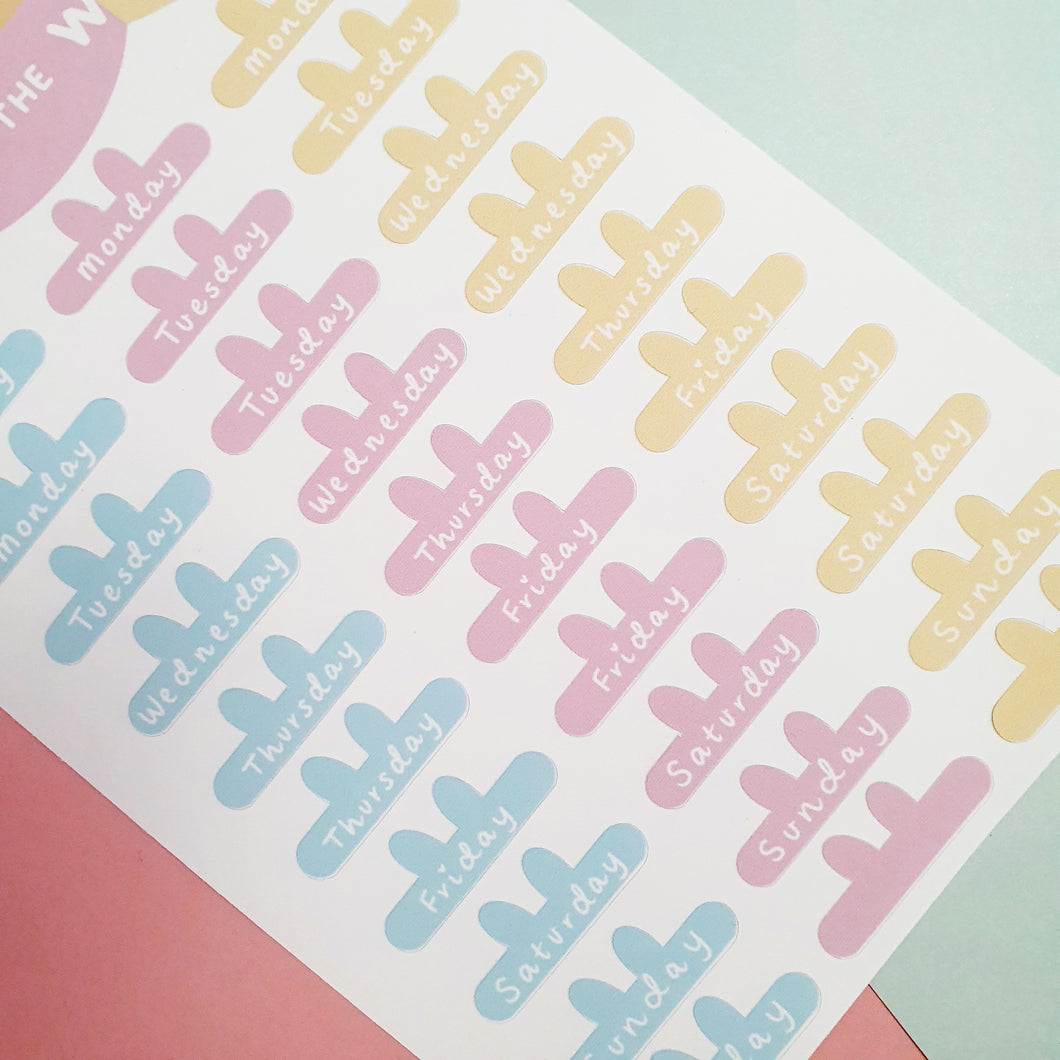 THE W
Monday
Tuesday
Wednesday
Wednesday
Thursday
Friday
Saturday
Saturday
Sunday
Monday
Tuesday
Tuesday
Wednesday
Thursday
Friday
Friday
Saturday
Sunday
Monday
Tuesday
Wednesday
Thursday
Thursday
Friday
Saturday
Sunday
day